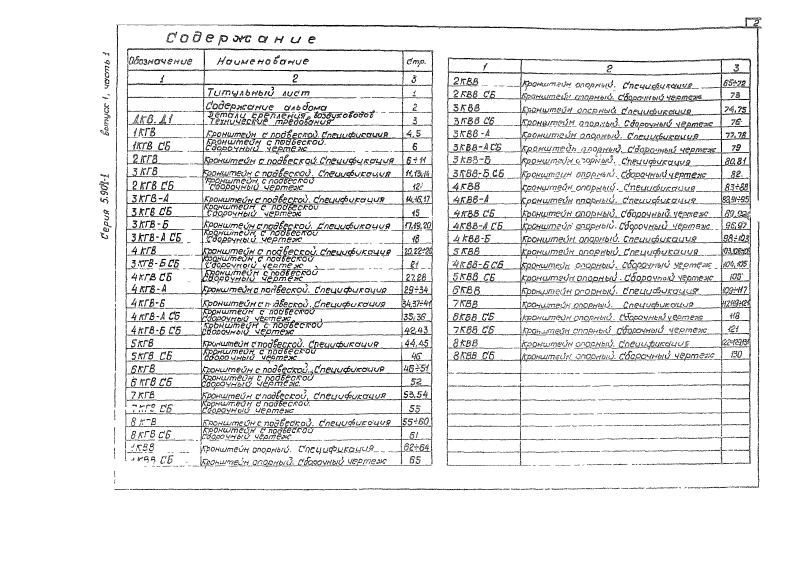 2
Содержание
Серия 5.904-1 выпуск 1, часть 1
Обозначение Наименование Стр.
1 2 3
Титульный лист 1
Содержание альбома 2
ДКВ. Д1 Детали крепления воздуховодов Технические требования 3
1КГВ Кронштейн с подвеской. Спецификация 4,5
1КГВ СБ Кронштейн с подвеской Сборочный чертеж 6
2КГВ Кронштейн с подвеской. Спецификация 6÷11
3КГВ Кронштейн с подвеской. Спецификация 11,13,14
2КГВ СБ Кронштейн с подвеской Сборочный чертеж 12
3КГВ-А Кронштейн с подвеской. Спецификация 14,16,17
3КГВ СБ Кронштейн с подвеской Сборочный чертеж 15
3КГВ-Б Кронштейн с подвеской. Спецификация 17,19,20
3КГВ-А СБ Кронштейн с подвеской Сборочный чертеж 18
4КГВ Кронштейн с подвеской. Спецификация
3КГВ-Б СБ Кронштейн с подвеской Сборочный чертеж 21
4КГВ СБ Кронштейн с подвеской Сборочный чертеж 27,28
4КГВ-А Кронштейн с подвеской. Спецификация 29÷34
4КГВ-Б Кронштейн с подвеской. Спецификация 34,37÷41
4КГВ-А СБ Кронштейн с подвеской Сборочный чертеж 35,36
4КГВ-Б СБ Кронштейн с подвеской Сборочный чертеж 42,43
5КГВ Кронштейн с подвеской. Спецификация 44,45
5КГВ СБ Кронштейн с подвеской Сборочный чертеж 46
6КГВ Кронштейн с подвеской. Спецификация 46÷51
6КГВ СБ Кронштейн с подвеской Сборочный чертеж. 52
7КГВ Кронштейн с подвеской. Спецификация 53,54
7КГВ СБ Кронштейн с подвеской. Сборочный чертеж 55
8КГВ Кронштейн с подвеской. Спецификация 55÷60
8КГВ СБ Кронштейн с подвеской Сборочный чертеж 61
1КВВ Кронштейн опорный. Спецификация 62÷64
1КВВ СБ Кронштейн опорный. Сборочный чертеж 65
1 2 3
2КВВ Кронштейн опорный. Спецификация 65÷72
2КВВ СБ Кронштейн опорный. Сборочный чертеж 73
3КВВ Кронштейн опорный. Спецификация 74,75
3КВВ СБ Кронштейн опорный. Сборочный чертеж 76
3КВВ-А Кронштейн опорный. Спецификация 77,78
3КВВ-А СБ Кронштейн опорный. Сборочный чертеж 79
3КВВ-Б Кронштейн опорный. Спецификация 80,81
3КВВ-Б СБ Кронштейн опорный. Сборочный чертеж 82
4КВВ Кронштейн опорный. Спецификация 83÷88
4КВВ-А Кронштейн опорный. Спецификация
4КВВ СБ Кронштейн опорный. Сборочный чертеж
4КВВ-А СБ Кронштейн опорный. Сборочный чертеж 96,97
4КВВ-Б Кронштейн опорный. Спецификация 98÷103
5КВВ Кронштейн опорный. Спецификация
4КВВ-Б СБ Кронштейн опорный. Сборочный чертеж 104,105
5КВВ СБ Кронштейн опорный. Сборочный чертеж
6КВВ Кронштейн опорный. Спецификация 109÷117
7КВВ Кронштейн опорный. Спецификация
6КВВ СБ Кронштейн опорный. Сборочный чертеж 118
7КВВ СБ Кронштейн опорный. Сборочный чертеж 121
8КВВ Кронштейн опорный. Спецификация
8КВВ СБ Кронштейн опорный. Сборочный чертеж 130